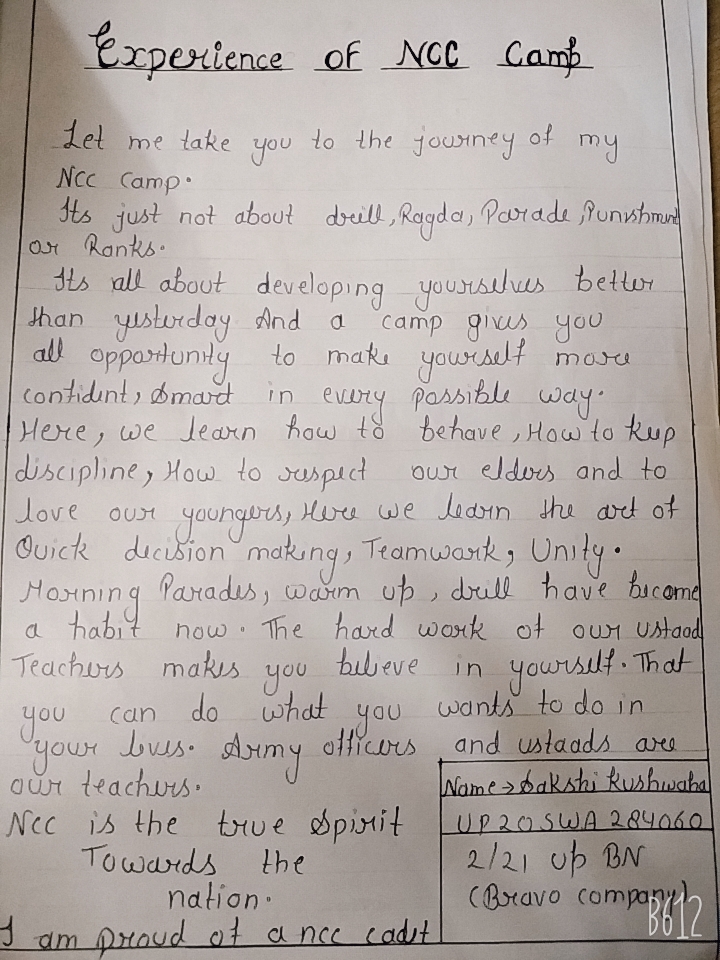 Experience of NCC Camp
Let me take you to the journey of my
NCC Camp.
Its just not about drill, Ragda, Parade, Punishment
or Ranks.
Its all about developing yourselves better
than yesterday And a camp gives you
all opportunity to make yourself more
confident, Smart in every possible way.
Here, we learn how to behave, How to keep
discipline, How to respect our elders and to
love our youngers, Here we learn the art of
Quick decision making, Teamwork, Unity.
Morning Parades, warm up, drill have become
a habit now. The hard work of our ustaad
Teachers makes you believe in yourself. That
you can do what you wants to do in
your lives. Army officers and ustaads are
our teachers.
NCC is the true Spirit
Towards the
nation.
I am proud of a ncc cadet
Name → Sakshi Kushwaha
UP20SWA 284060
2/21 up BN
(Bravo company)
B612